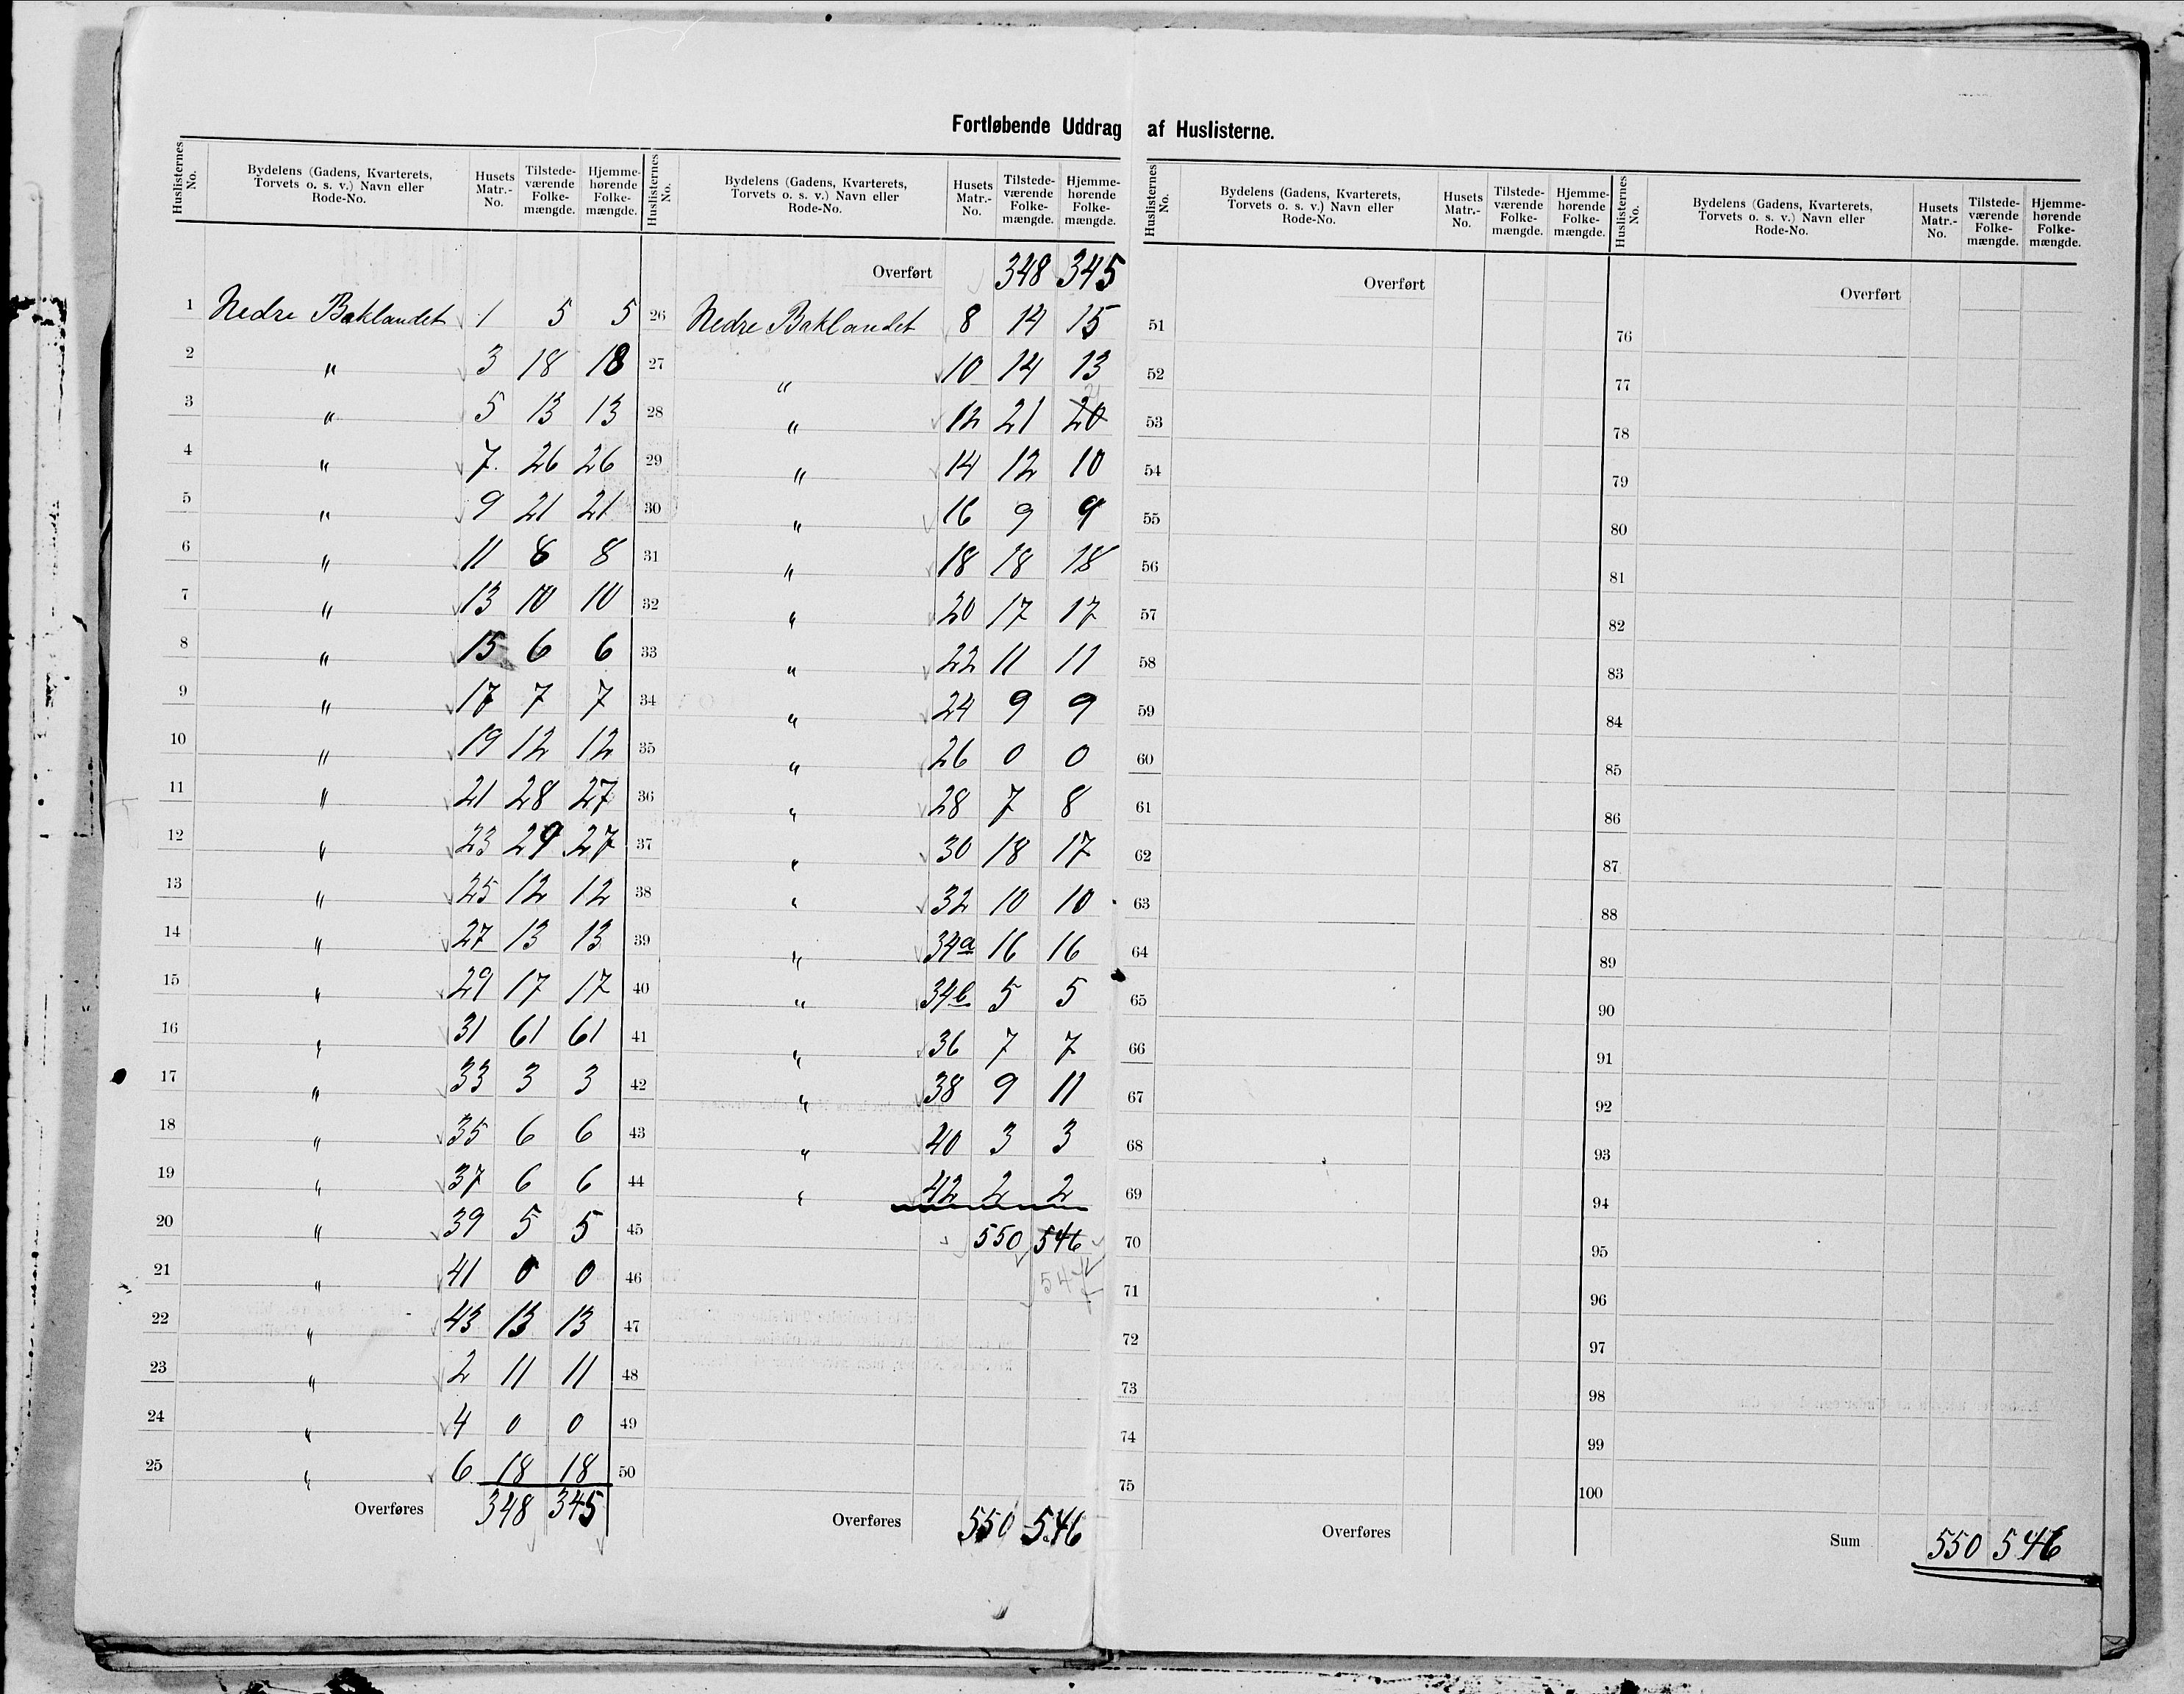 Fortløbende Uddrag af Huslisterne.
Huslisternes No. Bydelens (Gadens, Kvarterets, Torvets o. s. v.) Navn eller Rode-No. Husets Matr.-No. Tilstede-værende Folke-mængde. Hjemme-hørende Folke-mængde.
1 Nedre Baklandet 1 5 5
2 " 3 18 18
3 " 5 13 13
4 " 7. 26 26
5 " 9 21 21
6 " 11 8 8
7 " 13 10 10
8 " 15 6 6
9 " 17 7 7
10 " 19 12 12
11 " 21 28 27
12 " 23 29 27
13 " 25 12 12
14 " 27 13 13
15 " 29 17 17
16 " 31 61 61
17 " 33 3 3
18 " 35 6 6
19 " 37 6 6
20 " 39 5 5
21 " 41 0 0
22 " 43 13 13
23 " 2 11 11
24 " 4 0 0
25 " 6 18 18
Overføres 348 345
Huslisternes No. Bydelens (Gadens, Kvarterets, Torvets o. s. v.) Navn eller Rode-No. Husets Matr.-No. Tilstede-værende Folke-mængde. Hjemme-hørende Folke-mængde.
Overført 348 345
26 Nedre Baklandet 8 14 15
27 " 10 14 13
28 " 12 21 20 21
29 " 14 12 10
30 " 16 9 9
31 " 18 18 18
32 " 20 17 17
33 " 22 11 11
34 " 24 9 9
35 " 26 0 0
36 " 28 7 8
37 " 30 18 17
38 " 32 10 10
39 " 34a 16 16
40 " 34b 5 5
41 " 36 7 7
42 " 38 9 11
43 " 40 3 3
44 " 42 2 2
45 550 546
46 547
47
48
49
50
Overføres 550 546
Huslisternes No. Bydelens (Gadens, Kvarterets, Torvets o. s. v.) Navn eller Rode-No. Husets Matr.-No. Tilstede-værende Folke-mængde. Hjemme-hørende Folke-mængde.
Overført
51
52
53
54
55
56
57
58
59
60
61
62
63
64
65
66
67
68
69
70
71
72
73
74
75
Overføres
Huslisternes No. Bydelens (Gadens, Kvarterets, Torvets o. s. v.) Navn eller Rode-No. Husets Matr.-No. Tilstede-værende Folke-mængde. Hjemme-hørende Folke-mængde.
Overført
76
77
78
79
80
81
82
83
84
85
86
87
88
89
90
91
92
93
94
95
96
97
98
99
100
Sum 550 546